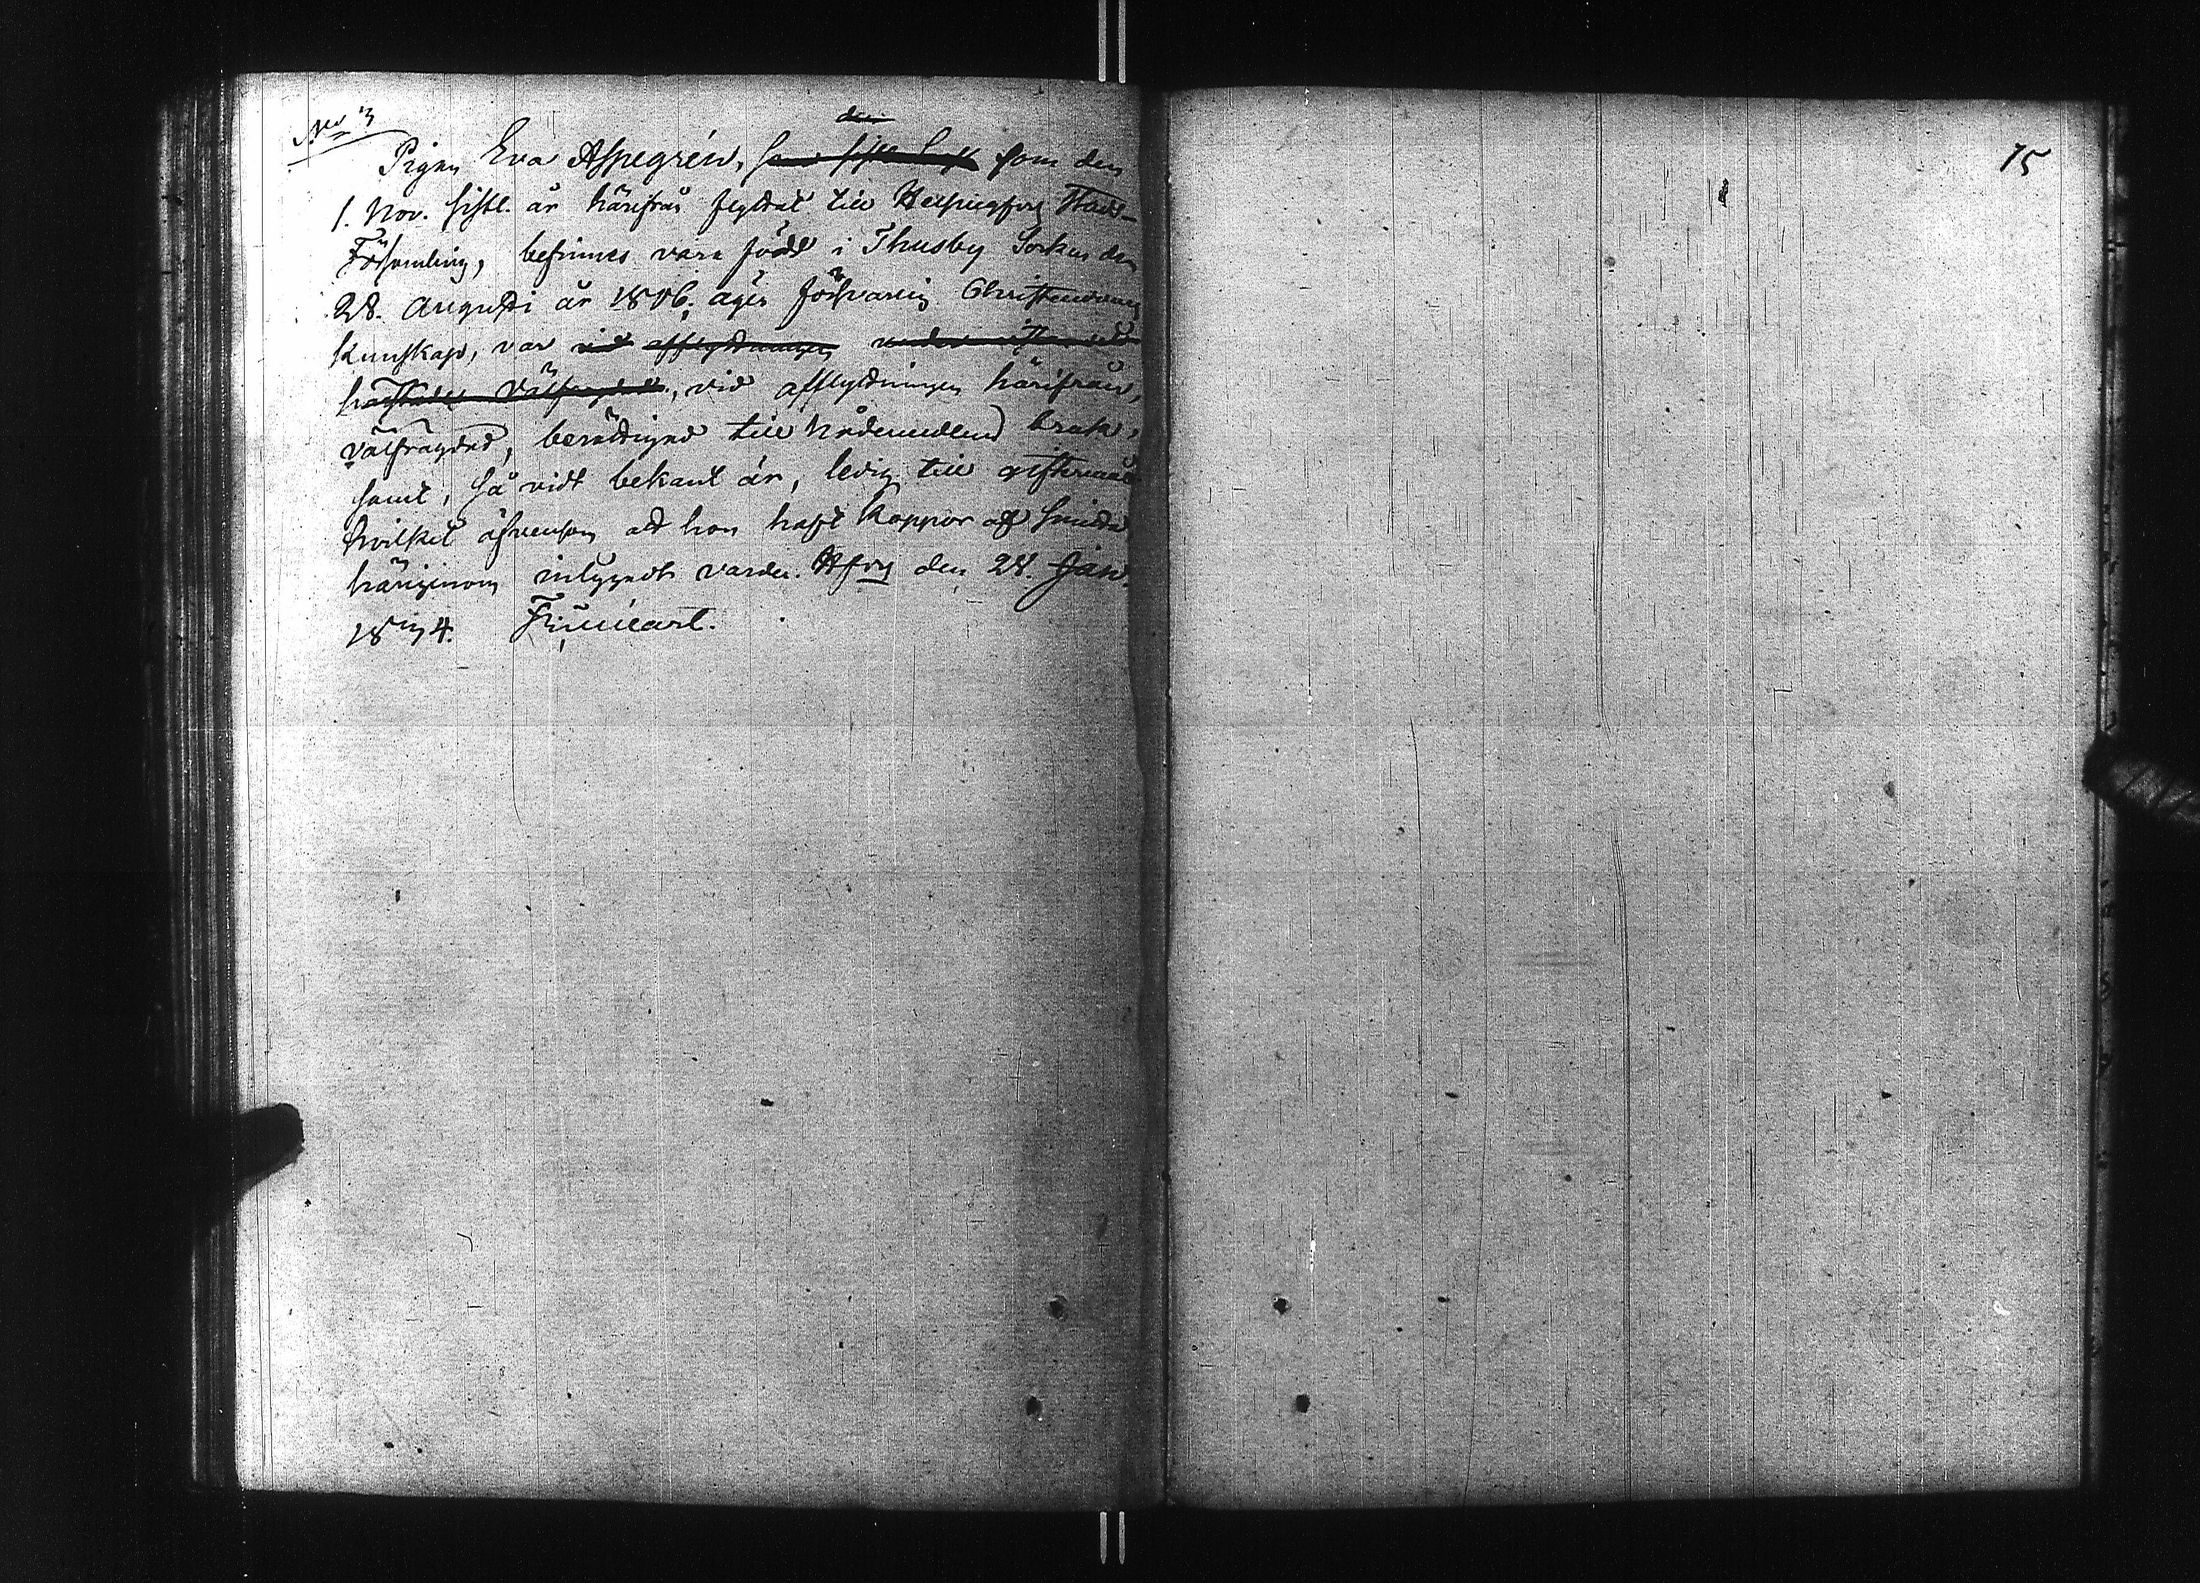 No 3
Pigan Eva Aspegrén, som den
1. Nov. sistl. år härifrån flyttat till Helsingfors Stads-
Församling, befinnes vara född i Thusby Sockn den
28. Augusti år 1806; äger försvarlig Christendoms
kunskap, var vid afflyttningen
, vid afflyttningen härifrån,
välfrägdad, berättigad till Nådemedlens bruk,
samt, så vidt bekant är, ledig till giftermål
hvilket äfvensom att hon haft koppor
härigenom intygadt varder. Hfors den 28. Jan.
1834.
75